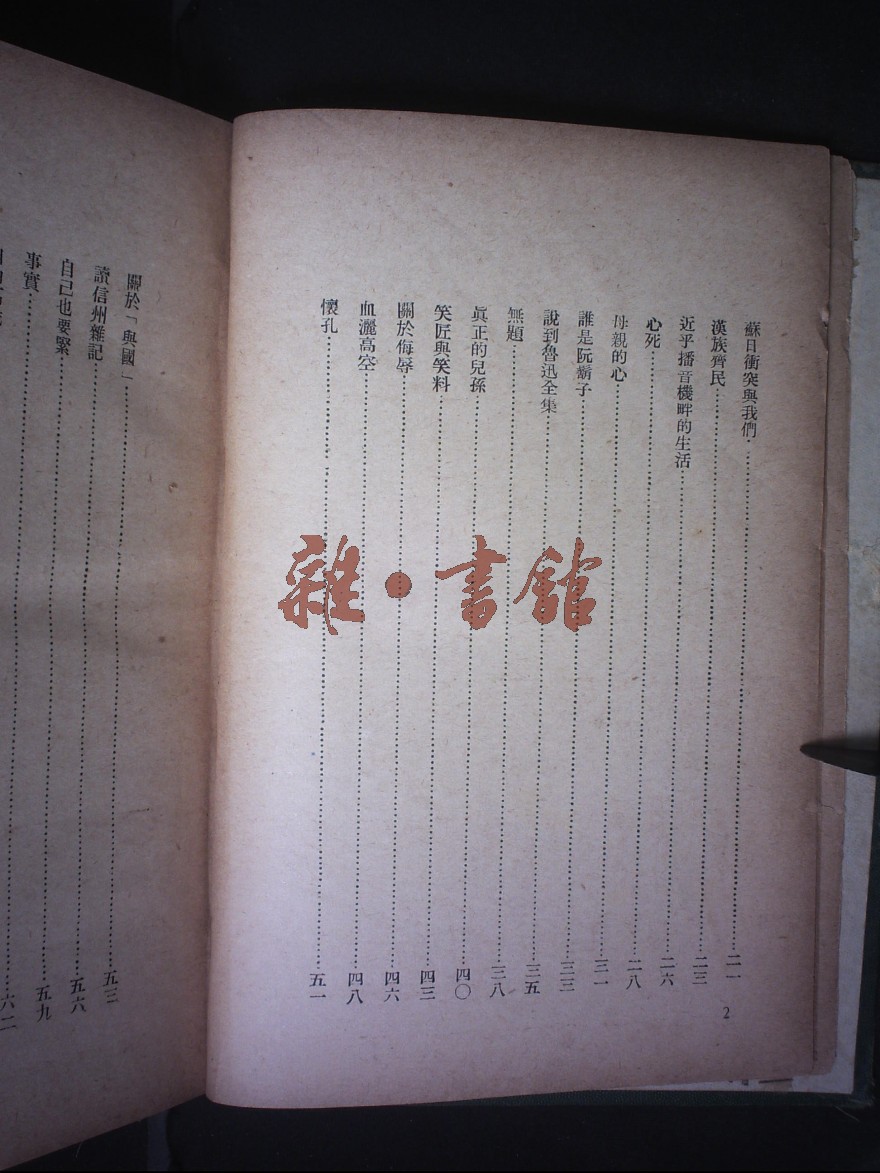 蘇日衝突與我們……二一
漢族齊民……二三
近乎播音機畔的生活……二六
心死……二八
母親的心……三一
誰是阮鬍子……三三
說到魯迅全集……三五
無題……三八
眞正的兒孫……四〇
笑匠與笑料……四三
關於侮辱……四六
血灑高空……四八
懷孔……五一
2
關於「與國」……五三
讀信州雜記……五六
自己也要緊……五九
事實……六二
雜·書館